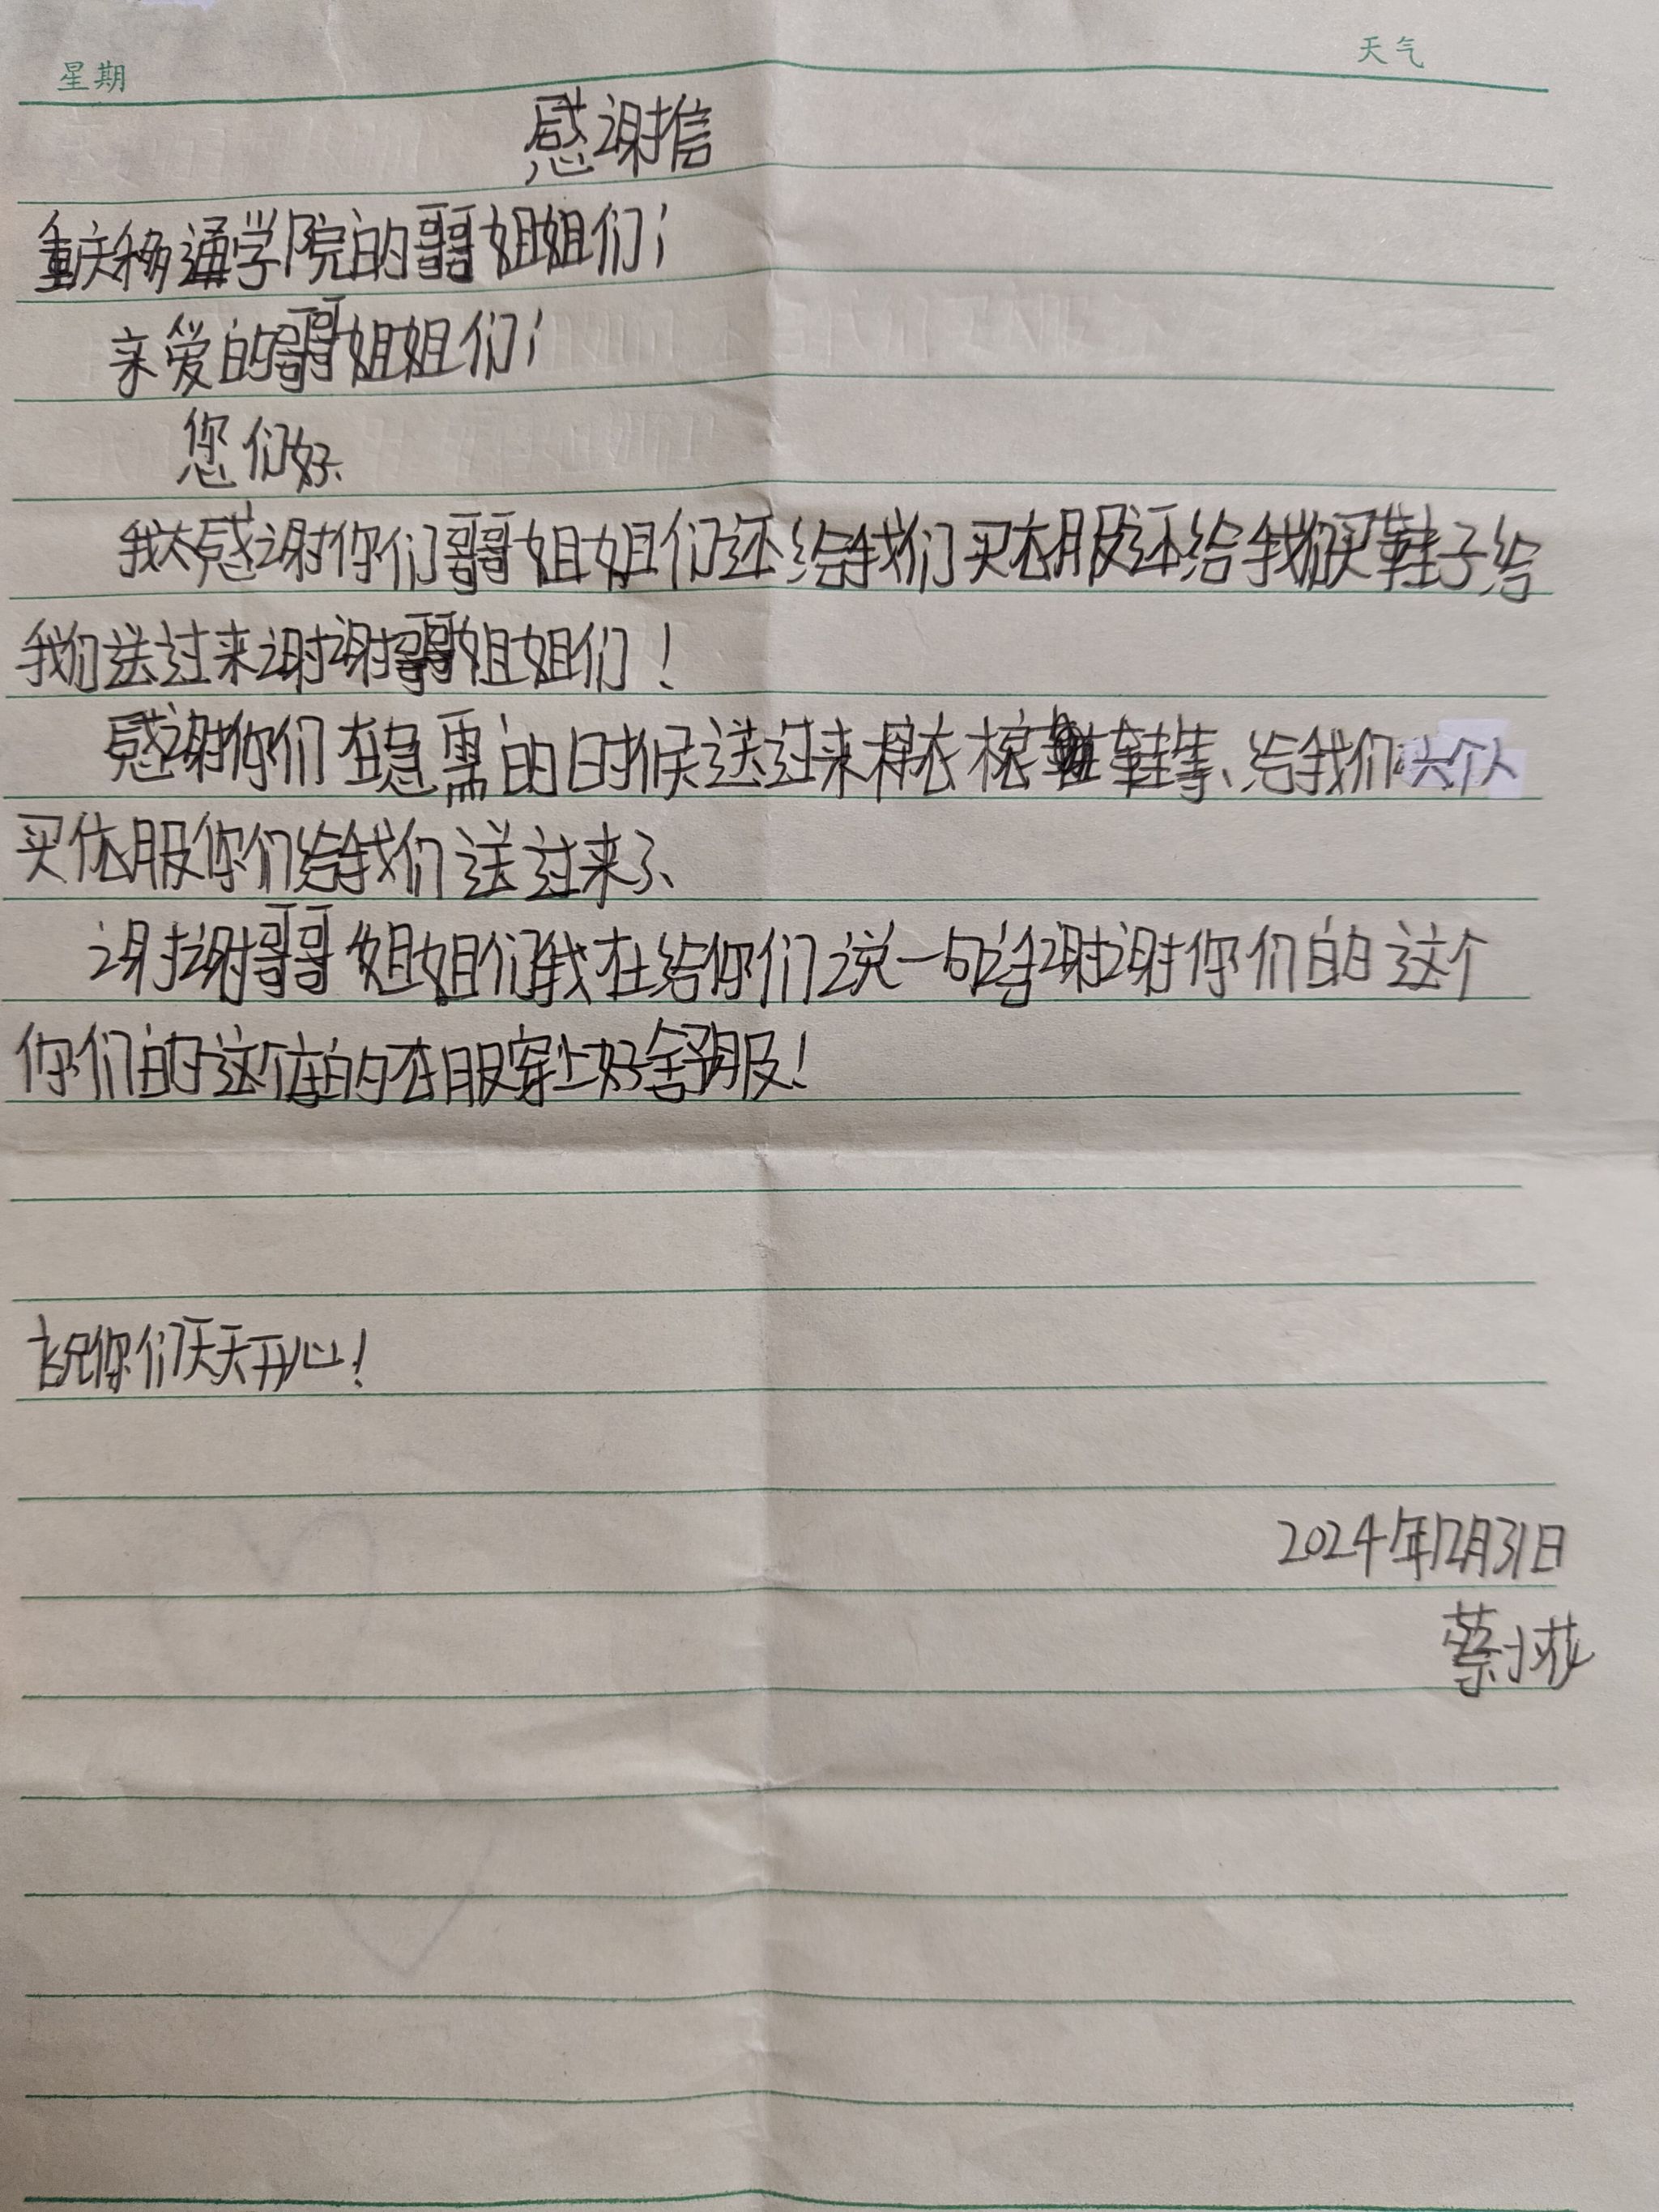 星期 天气
感谢信
重庆移通学院的哥哥姐姐们；
亲爱的哥哥姐姐们；
您们好、
我太感谢你们哥哥姐姐们还给我们买衣服还给我们买鞋子给
我们送过来谢谢哥哥姐姐们！
感谢你们在急需的时候送过来棉衣棉鞋等、给我们六个人
买依服你们给我们送过来了、
谢谢哥哥姐姐们我在给你们说一句谢谢你们的这个
你们的这个的衣服穿上好舒服！
祝你们天天开心！
2024年12月31日
蔡小